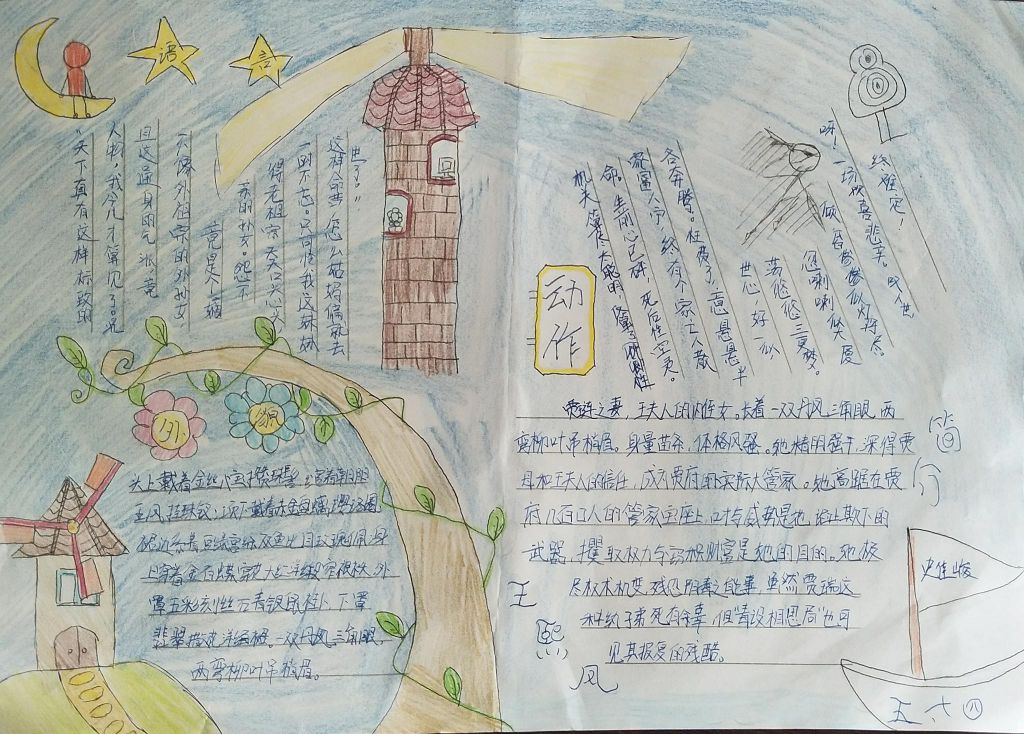 语言
“天下真有这样标致的
人物,我今儿才算见了!况
且这通身的气派,竟
不像外祖宗的外孙女
竟是个嫡
亲的孙女。怨不
得老祖宗天天口头心头
一时不忘。只可怜我这妹妹
这样命苦,怎么姑妈偏就去
世了!”
动作
机关算尽太聪明,反算了卿卿性
命。生前心已碎,死后性空灵。
家富人宁,终有个家亡人散
各奔腾。枉费了,意悬悬半
世心,好一似
荡悠悠三更梦。
忽喇喇似大厦
倾,昏惨惨似灯将尽。
呀!一场欢喜悲辛。叹人世
终难定!
外貌
头上戴着金丝八宝攒珠髻,绾着朝阳
五凤挂珠钗,项下戴着赤金盘螭璎珞圈
裙边系着豆绿宫绦双鱼比目玫瑰佩,身
上穿着金百蝶穿花大红洋缎窄裉袄,外
罩五彩刻丝石青银鼠褂,下罩
翡翠撒花洋绉裙。一双丹凤三角眼,
两弯柳叶吊梢眉。
简介
贾琏之妻,王夫人的内侄女。长着一双丹凤三角眼,两
弯柳叶吊梢眉,身量苗条,体格风骚。她精明强干,深得贾
母和王夫人的信任,成为贾府的实际大管家。她高踞在贾
府几百口人的管家宝座上,口才与威势是她谄上欺下的
武器,攫取权力与窃积财富是她的目的。她极
尽权术机变,残忍阴毒之能事,虽然贾瑞这
种纨子弟死有余辜,但“毒设相思局”也可
见其报复的残酷。
王熙风
史佳璇
五.六㈣